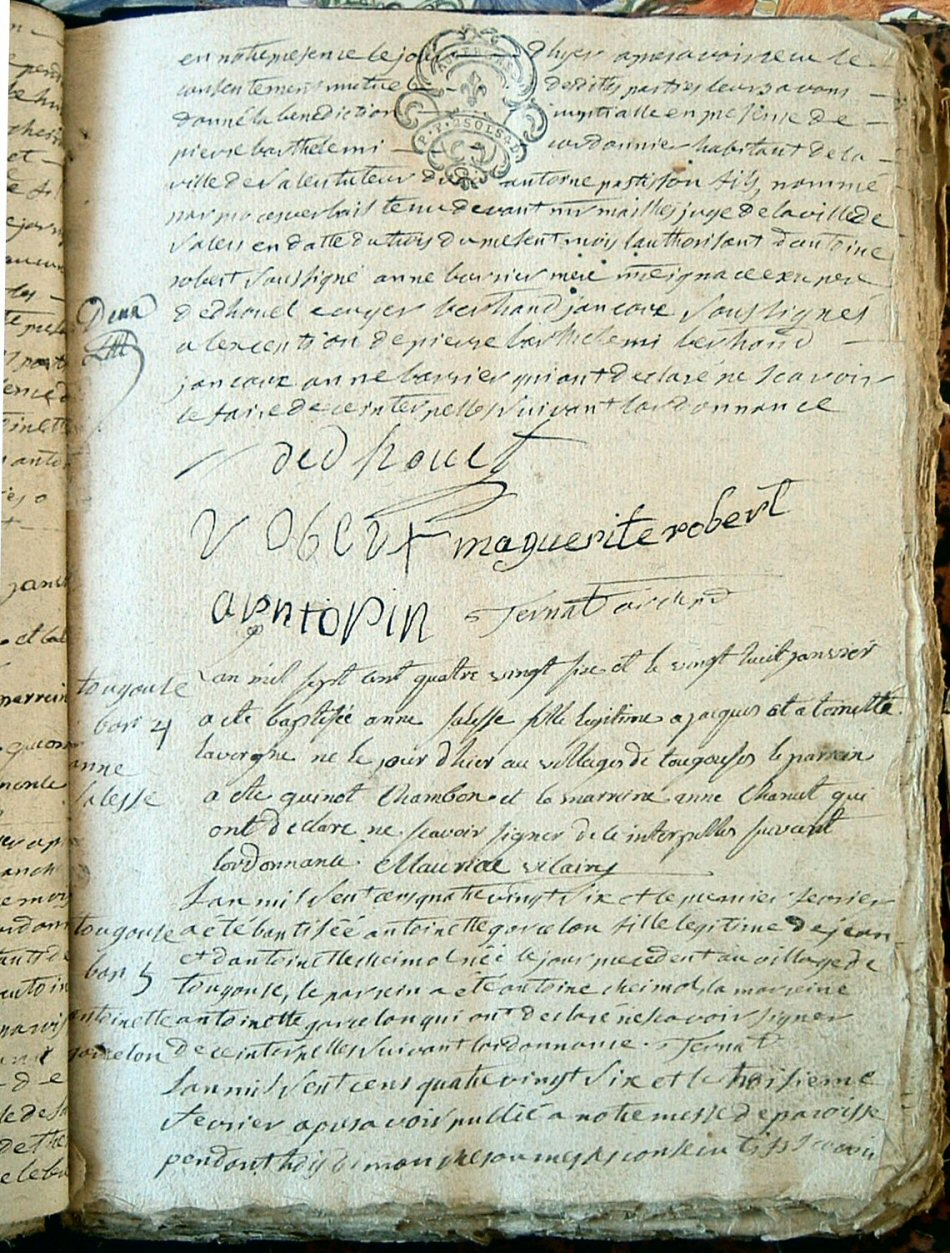 en notre presence le jour d'hyer apres avoir receu le
consentement mutuel desdittes parties leurs avons
donné la benediction nuptialle en presense de
pierre barthelemi cordonnier habitant de la
ville de Salers tuteur antoine pastisson fils, nommé
par proces verbail tenu devant mr mailhes juge de la ville de
Salers en datte du trois du present mois l'authorisant d'antoine
robert Soussigné anne barrier mere
dedhouet ecuyer bertrand jancoux Soussignes
a lexception de pierre barthelemi bertrand
jancoux anne barrier qui ont declaré ne Scavoir
le faire de ce interpellés Suivant lordonnance
dedhouet
robert maguerite robert
Ternat
Lan mil sept cent quatre vingt six et le vingt huit janvier
tougouse
a ete baptisée anne salesse fille legitime a jacques et a tomette
bap 4
lavergne ne le jour d'hier au village de tougouses le parrein
anne
a ete guinot Chambon et la marreine anne Chanut qui
salesse
ont declare ne scavoir signer de ce interpelles suivant
lordonnance Mauriac vicaire
Lan mil Sept cens quatre vingt Six et le premier fevrier
tougouse
a été baptisée antoinette garcelon fille legitime de jean
et d'antoinette cheimol née le jour precedent au village de
bap 5
tougouse, le parrein a eté antoine cheimol, la marreine
antoinette
antoinette garcelon qui ont declaré ne scavoir signer
garcelon
de ce interpellés Suivant lordonnance. Ternat
Lan mil Sept cens quatre vingt Six et le troisieme
fevrier apres avoir publié a notre messe de paroisse
pendant trois dimanches ou